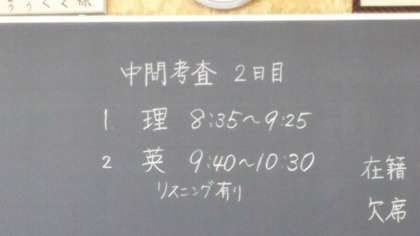 中間考査 2日目
1 理 8:35〜9:25
2 英 9:40〜10:30
リスニング有り
在籍
欠席